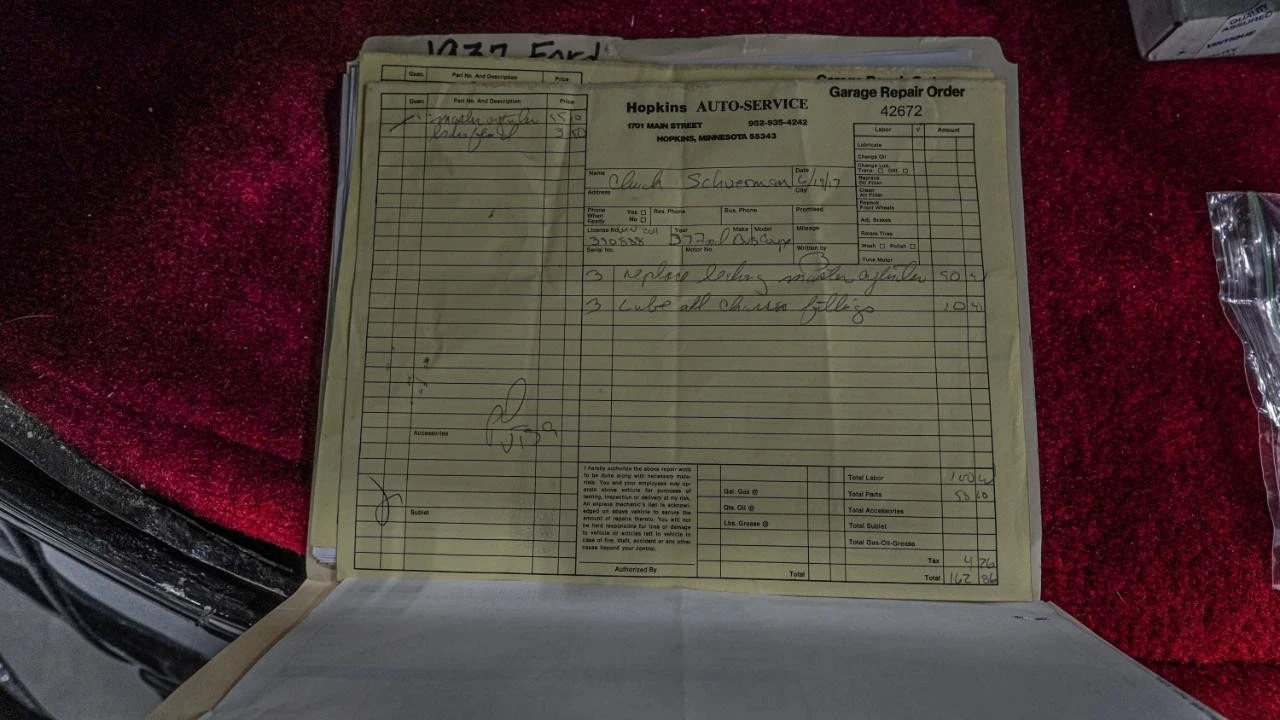 1937 Ford
Quan. Part No. And Description Price
Garage Repair Order
42672
Hopkins AUTO-SERVICE
1701 MAIN STREET 952-935-4242
HOPKINS, MINNESOTA 55343
Quan. Part No. And Description Price
master cylinder
Name Chuck Schverman Date 6/19/17
Address City
Phone When Ready Yes No Res. Phone Bus. Phone Promised
License No. 330838 Year 37 Make Model Mileage
Serial No. Motor No. Written by
Labor √ Amount
Lubricate
Change Oil
Change Lub. Trans. Diff.
Replace Oil Filter
Clean Air Filter
Repack Front Wheels
Adj. Brakes
Rotate Tires
Wash Polish
Tune Motor
3 replace leaking master cylinder
3 Lube all chassis fittings
Accessories
Visa
Sublet
I hereby authorize the above repair work
to be done along with necessary mate-
rials. You and your employees may op-
erate above vehicle for purposes of
testing, inspection or delivery at my risk.
An express mechanic's lien is acknowl-
edged on above vehicle to secure the
amount of repairs thereto. You will not
be held responsible for loss or damage
to vehicle or articles left in vehicle in
case of fire, theft, accident or any other
cause beyond your control.
Authorized By
Gal. Gas @
Qts. Oil @
Lbs. Grease @
Total
Total Labor 100
Total Parts 58 60
Total Accessories
Total Sublet
Total Gas-Oil-Grease
Tax 4 26
Total 162 86
QUALITY
ASSURED
VINTIQUE